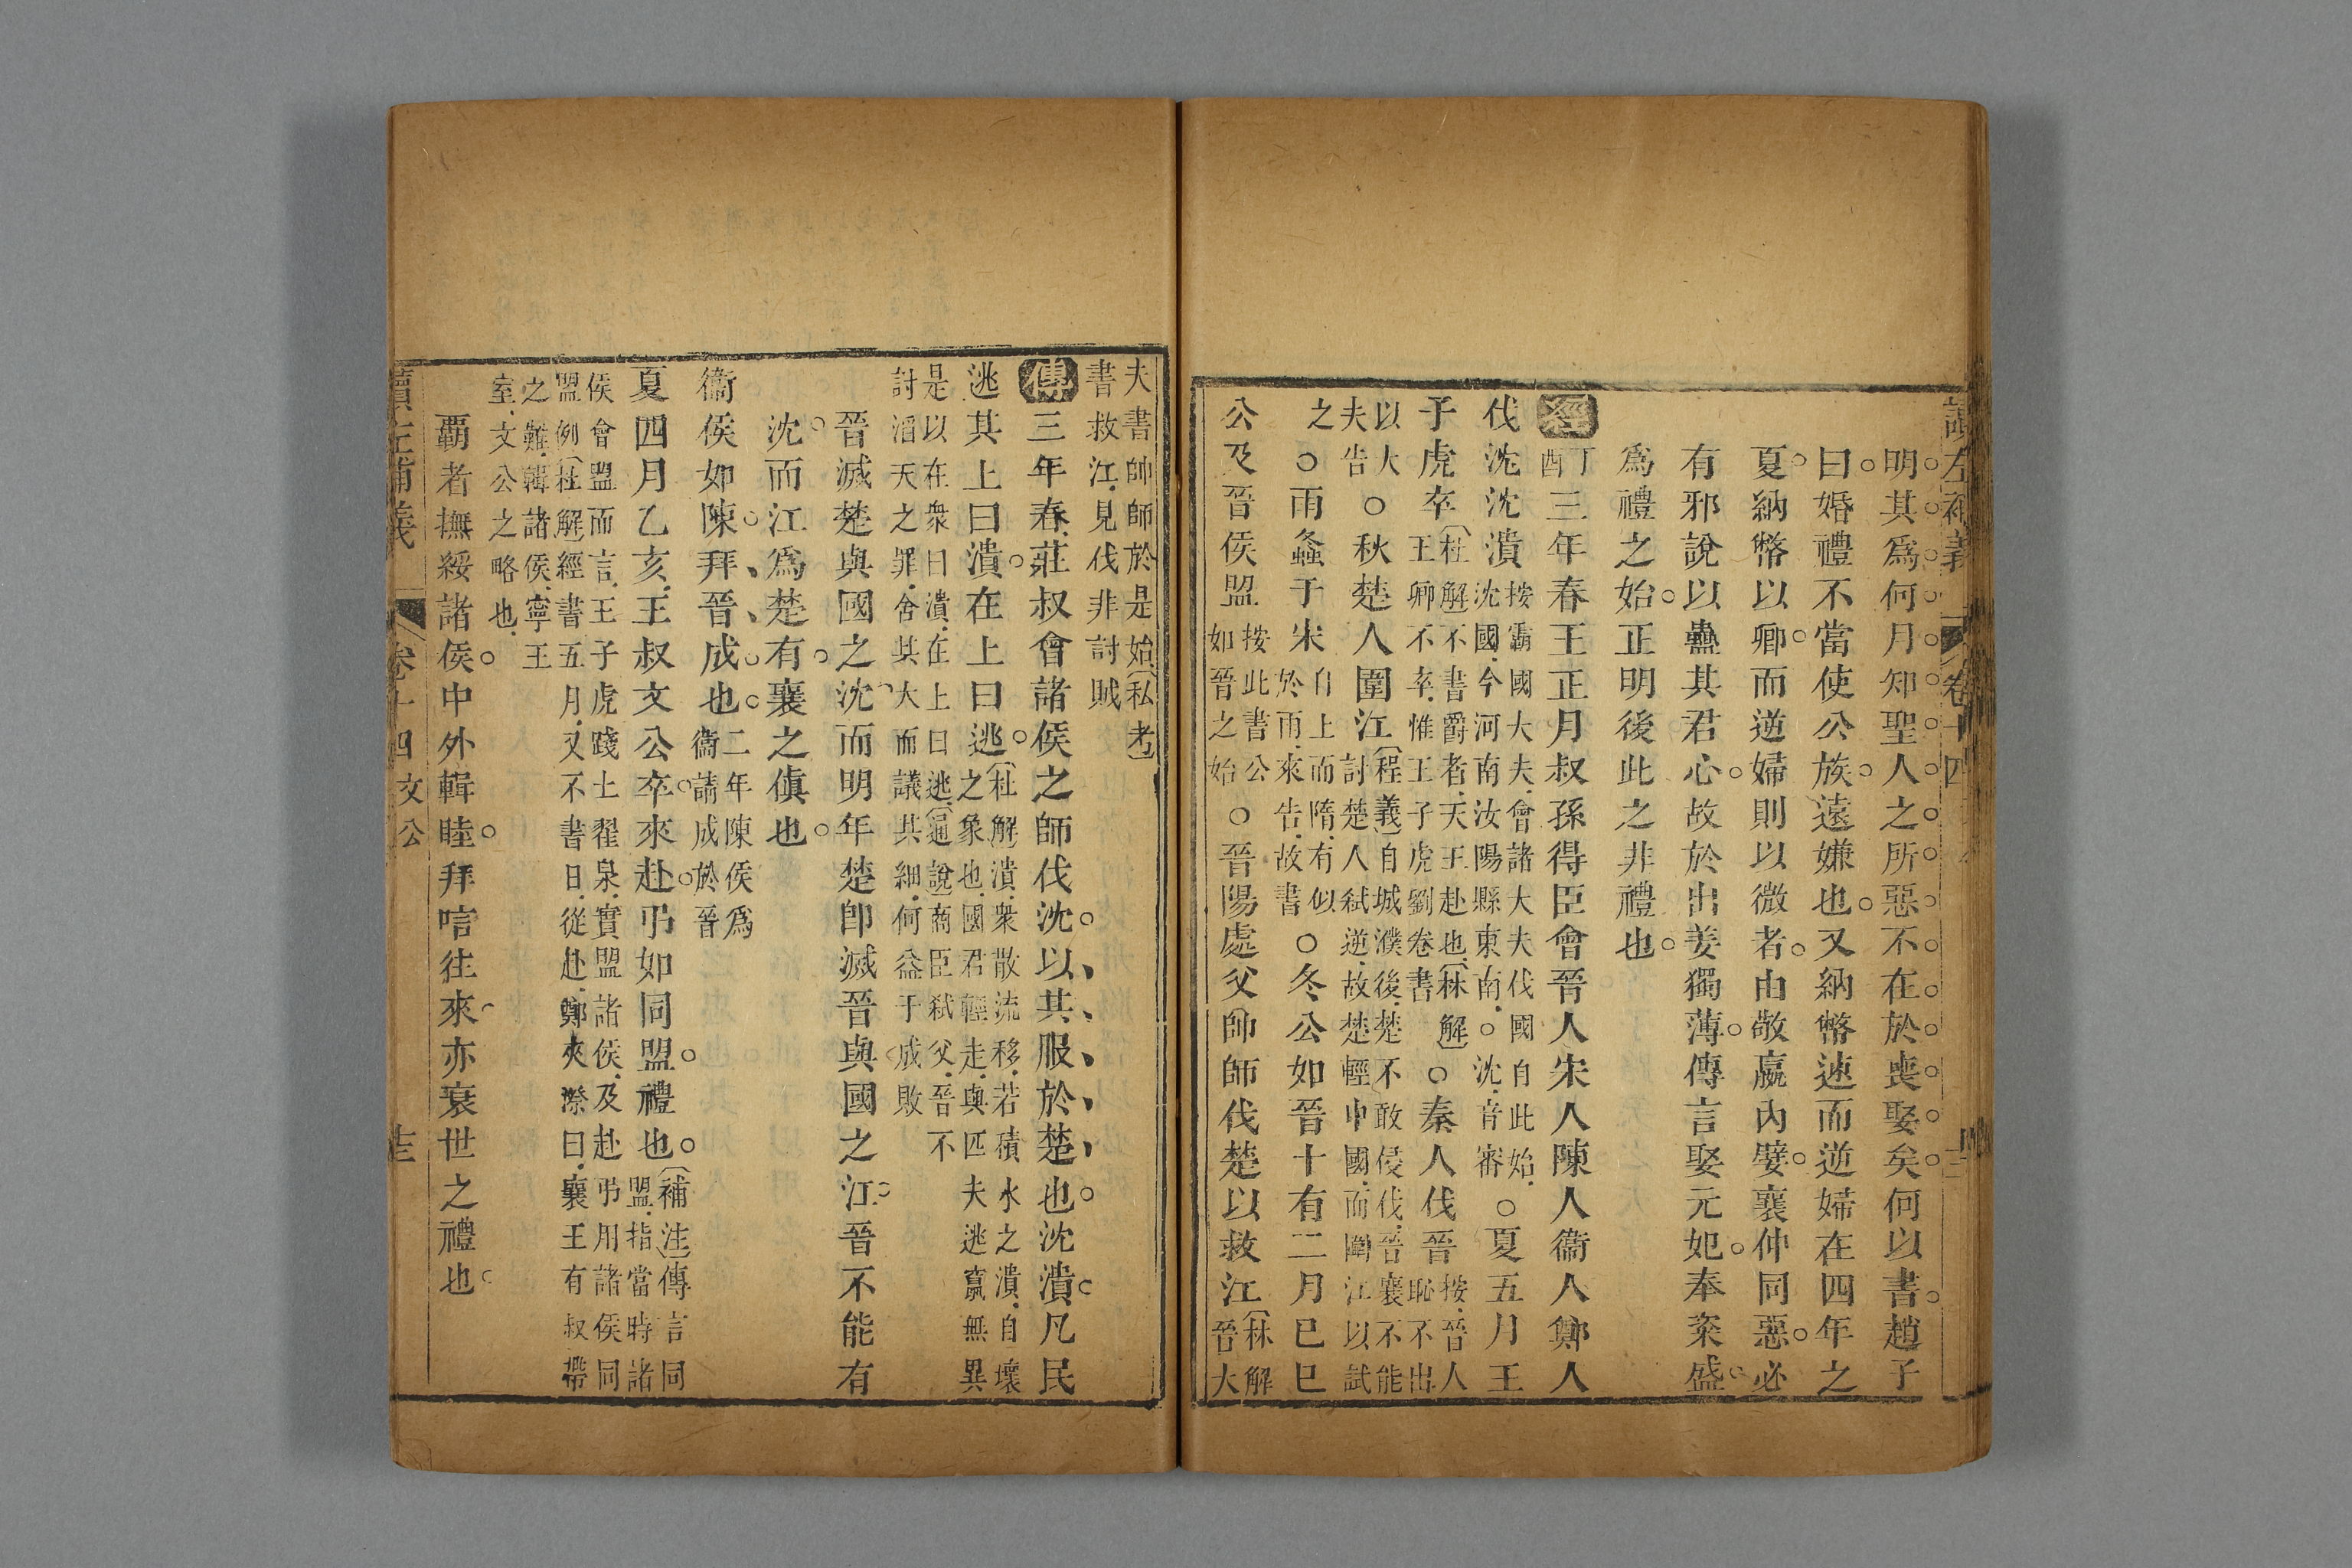 讀左補義 卷十四
明其爲何月知聖人之所惡不在於喪娶矣何以書趙子
曰婚禮不當使公族遠嫌也又納幣速而逆婦在四年之
夏納幣以卿而逆婦則以微者由敬嬴內嬖襄仲同惡必
有邪說以蠱其君心故於出姜獨薄傳言娶元妃奉粢盛
爲禮之始正明後此之非禮也
經丁酉三年春王正月叔孫得臣會晉人宋人陳人衞人鄭人
伐沈沈潰按霸國大夫會諸大夫伐國自此始沈國今河南汝陽縣東南○沈音審○夏五月王
子虎卒杜解不書爵者天王赴也林解王卿不卒惟王子虎劉卷書○秦人伐晉按晉人恥不出
以大夫告○秋楚人圍江程義自城濮後楚不敢侵伐晉襄不能討楚人弒逆故楚輕中國而圍江以試
之○雨螽于宋自上而隋有似於雨來告故書○冬公如晉十有二月己巳
公及晉侯盟按此書公如晉之始○晉陽處父帥師伐楚以救江林解晉大
夫書帥師於是始私考書救江見伐非討賊
傳三年春莊叔會諸侯之師伐沈以其服於楚也沈潰凡民
逃其上曰潰在上曰逃杜解潰衆散流移若積水之潰自壞之象也國君輕走與匹夫逃竄無異
是以在衆曰潰在上曰逃通說商臣弒父晉不討滔天之罪舍其大而議其細何益于成敗
晉滅楚與國之沈而明年楚卽滅晉與國之江晉不能有
沈而江爲楚有襄之傎也
衞侯如陳拜晉成也二年陳侯爲衞請成於晉
夏四月乙亥王叔文公卒來赴弔如同盟禮也補注傳言同盟指當時諸
侯會盟而言王子虎踐土翟泉實盟諸侯及赴弔用諸侯同盟例杜解經書五月又不書日從赴鄭夾漈曰襄王有叔帶
之難輯諸侯寧王室文公之略也
覇者撫綏諸侯中外輯睦拜唁往來亦衰世之禮也
讀左補義 卷十四 文公 十三